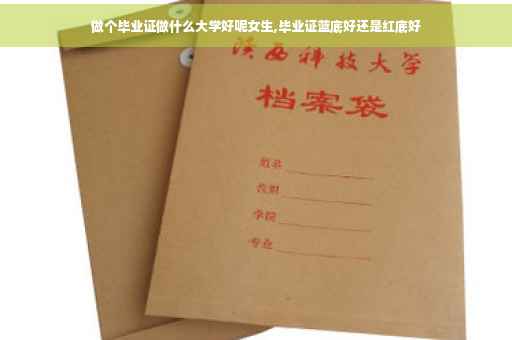 做个毕业证做什么大学好呢女生,毕业证蓝底好还是红底好
陕西科技大学
档案袋
姓名
学院
专业